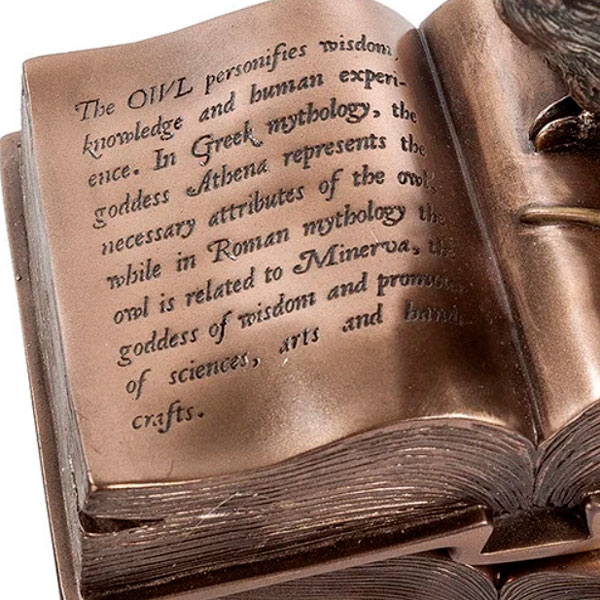 The OWL personifies wisdom,
knowledge and human experi-
ence. In Greek mythology, the
goddess Athena represents the
necessary attributes of the owl,
while in Roman mythology the
owl is related to Minerva, the
goddess of wisdom and
of sciences, arts and hand-
crafts.